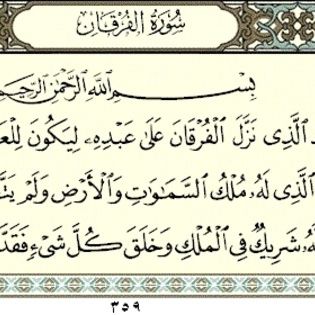 سُورَةُ الفُرْقَان
بِسْمِ اللَّهِ الرَّحْمَنِ الرَّحِيمِ
الَّذِي نَزَّلَ الْفُرْقَانَ عَلَى عَبْدِهِ لِيَكُونَ
الَّذِي لَهُ مُلْكُ السَّمَاوَاتِ وَالْأَرْضِ وَلَمْ
شَرِيكٌ فِي الْمُلْكِ وَخَلَقَ كُلَّ شَيْءٍ
٣٥٩